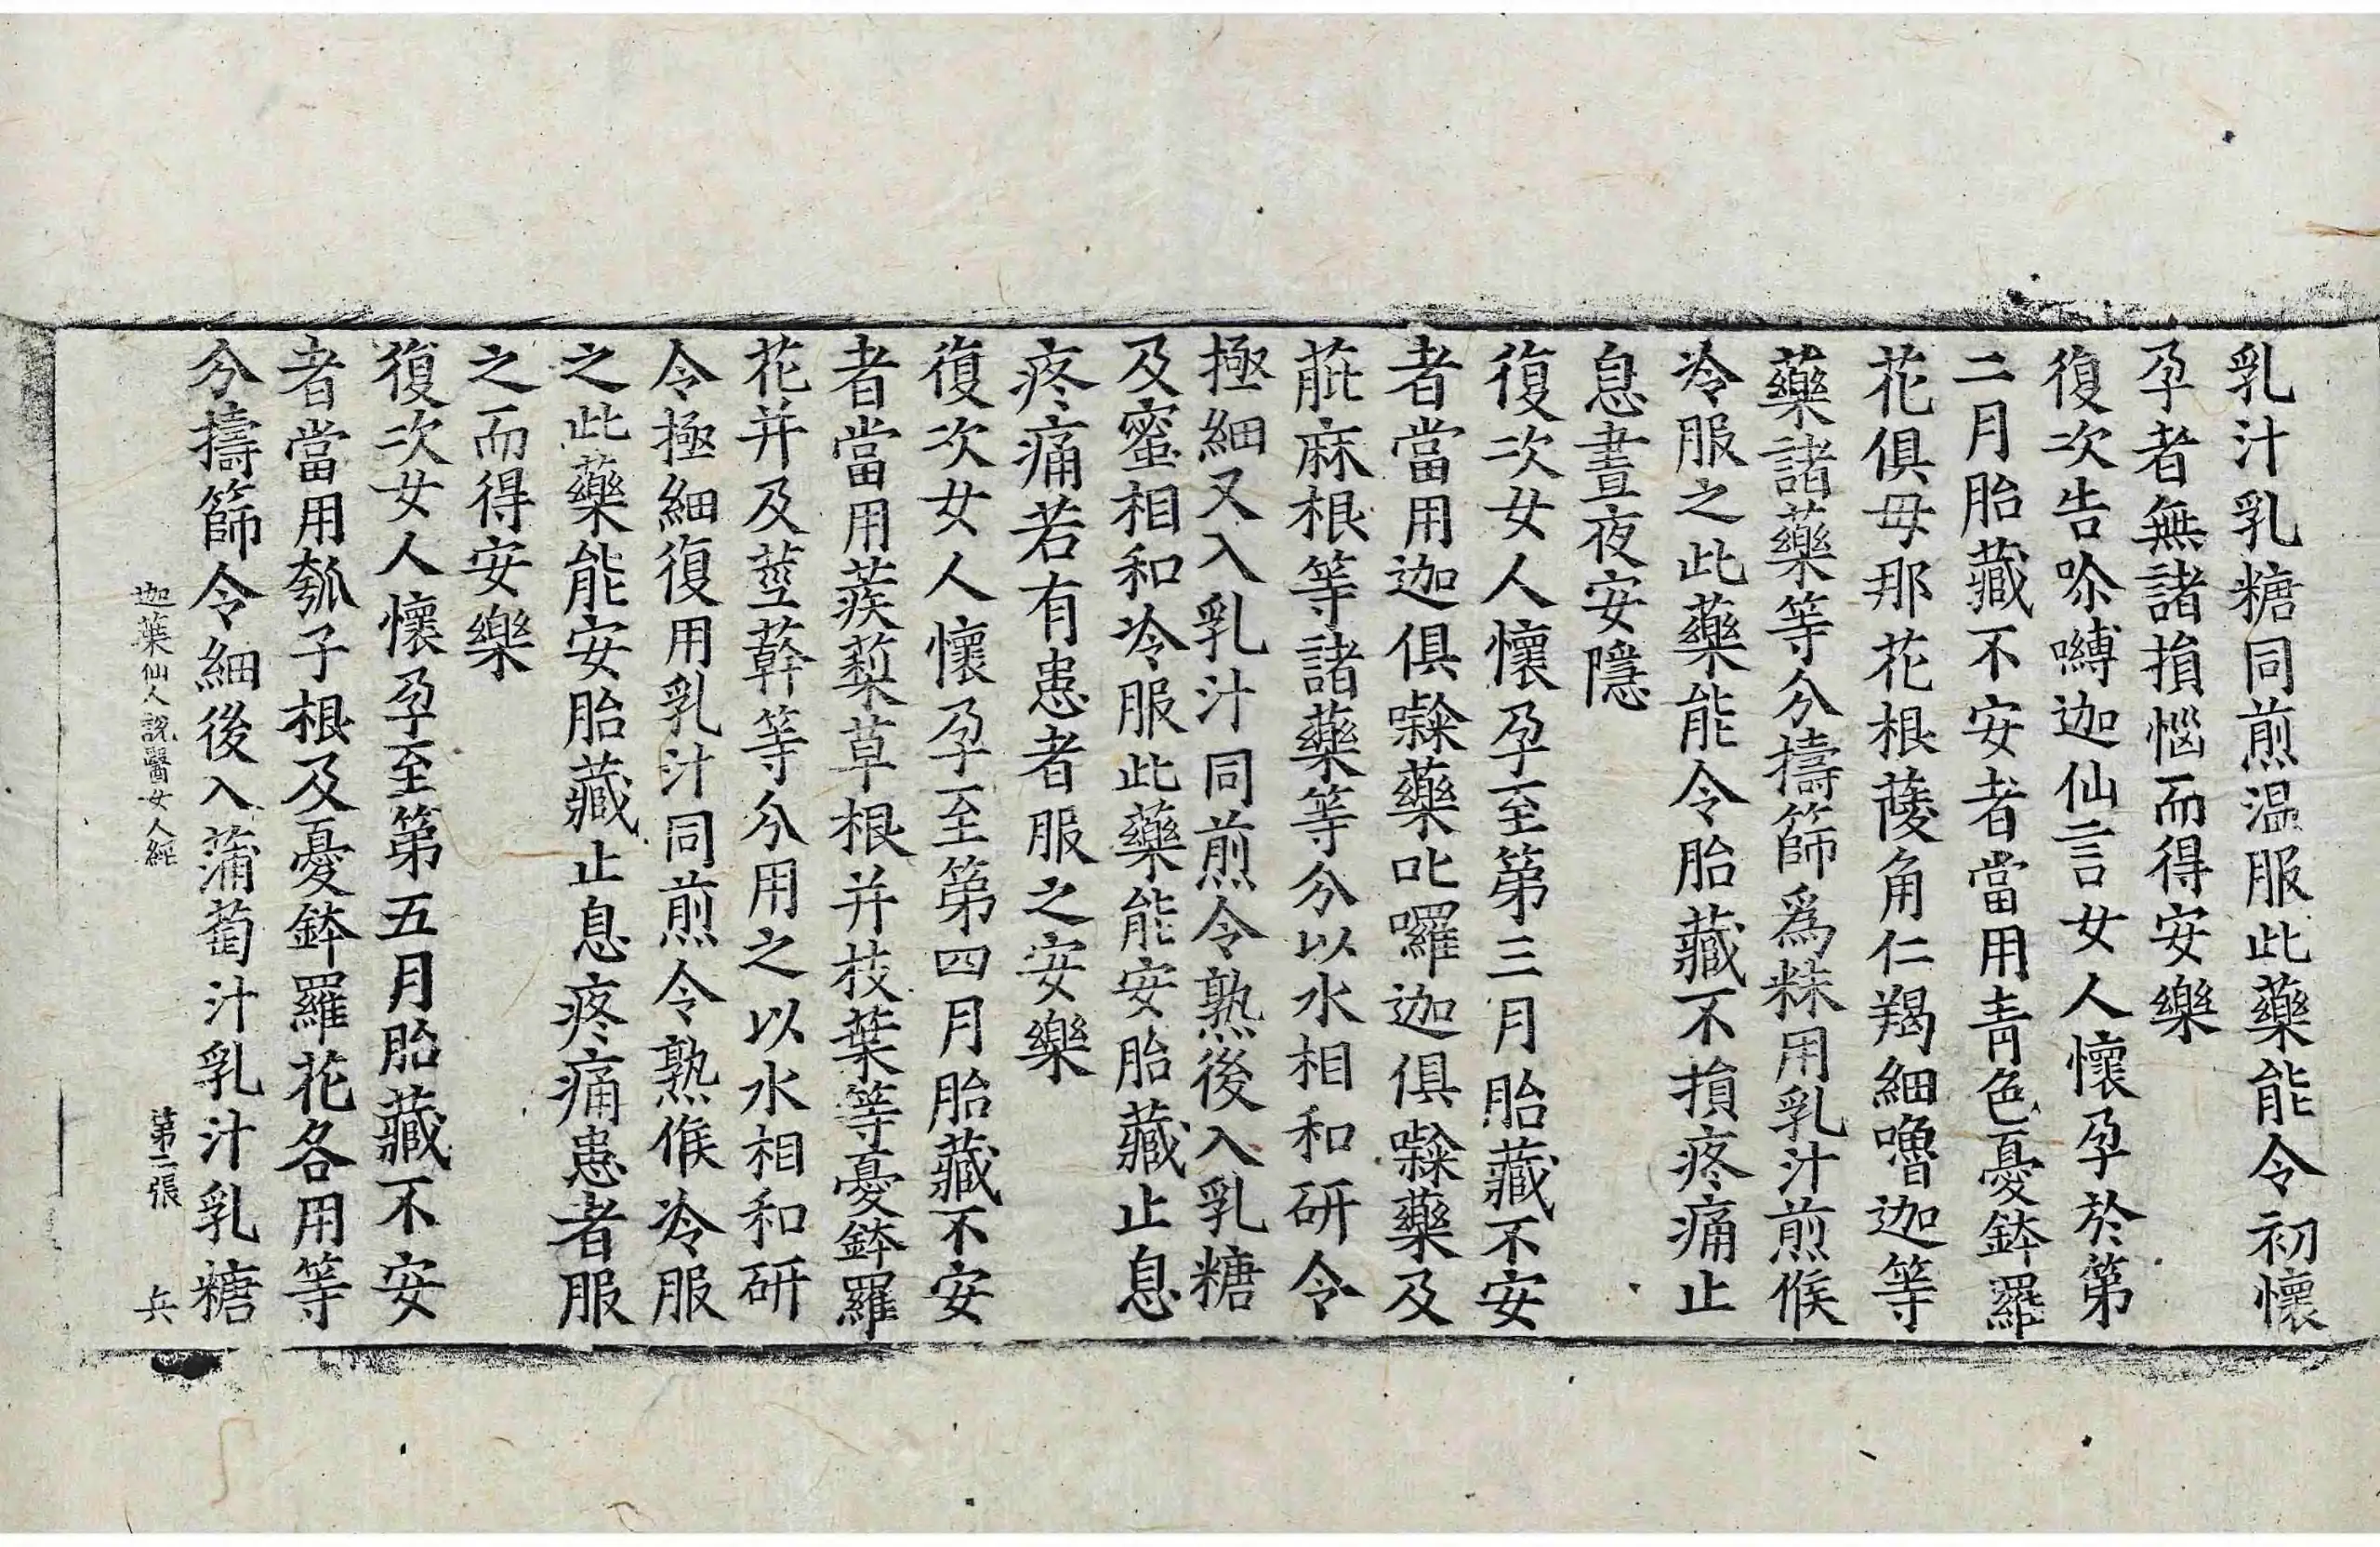 乳汁乳糖同煎温服此藥能令初懷
孕者無諸損惱而得安樂
復次告尒嚩迦仙言女人懷孕於第
二月胎藏不安者當用青色憂鉢羅
花俱毋那花根薐角仁羯細嚕迦等
藥諸藥等分擣篩爲粖用乳汁煎候
冷服之此藥能令胎藏不損疼痛止
息晝夜安隱
復次女人懷孕至第三月胎藏不安
者當用迦俱藥叱囉迦俱藥及
萉麻根等諸藥等分以水相和研令
極細又入乳汁同煎令熟後入乳糖
及蜜相和冷服此藥能安胎藏止息
疼痛若有患者服之安樂
復次女人懷孕至第四月胎藏不安
者當用蒺䔧草根并枝葉等憂鉢羅
花并及莖蓒等分用之以水相和研
令極細復用乳汁同煎令熟候冷服
之此藥能安胎藏止息疼痛患者服
之而得安樂
復次女人懷孕至第五月胎藏不安
者當用瓠子根及憂鉢羅花各用等
分擣篩令細後入蒲萄汁乳汁乳糖
迦葉仙人説醫女人經 第二張 兵